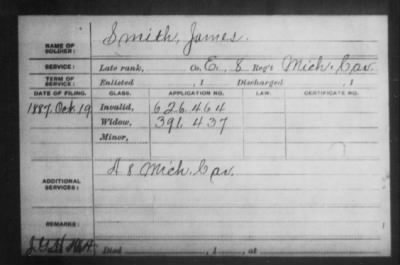 NAME OF SOLDIER: Smith, James.
SERVICE: Late rank, Co. E, 8 Reg't Mich. Cav.
TERM OF SERVICE: Enlisted , 1 Discharged , 1
DATE OF FILING. CLASS. APPLICATION NO. LAW. CERTIFICATE NO.
1887. Oct. 19 Invalid, 626.464
Widow, 391.437
Minor,
ADDITIONAL SERVICES: A 8 Mich. Cav.
REMARKS:
Died , 1 , at